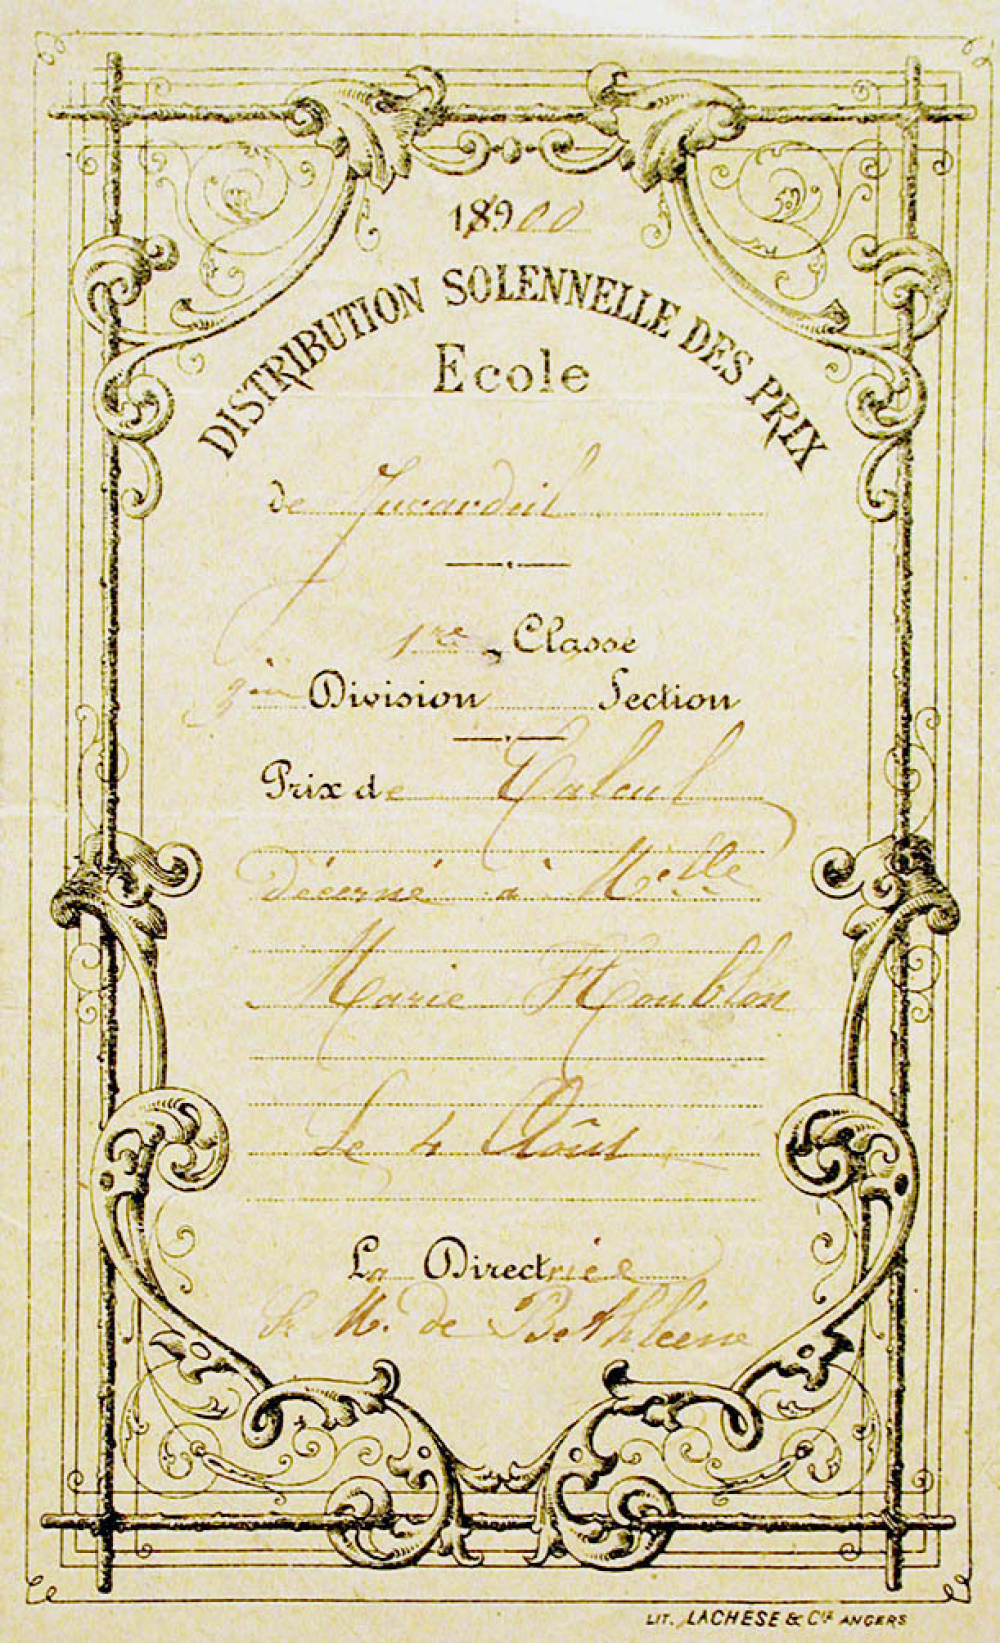 1900
DISTRIBUTION SOLENNELLE DES PRIX
Ecole
de Juvardeil
1re Classe
3ème Division Section
Prix de Calcul
Décerné à Melle
Marie Houblon
Le 4 Août
La Directrice
Sr M. de Bethléem
LIT. LACHÈSE & Cie ANGERS